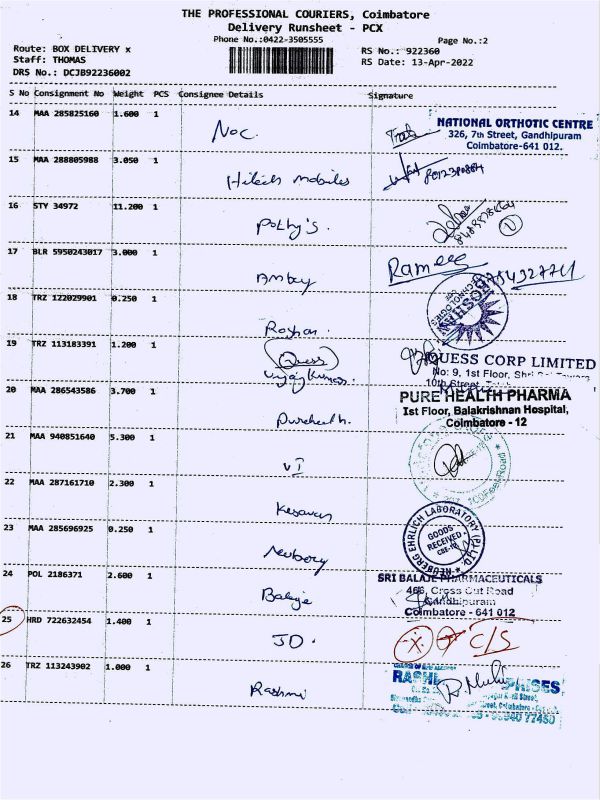 THE PROFESSIONAL COURIERS, Coimbatore
Delivery Runsheet - PCX
Phone No.:0422-3505555
Page No.:2
Route: BOX DELIVERY x
RS No.: 922360
Staff: THOMAS
RS Date: 13-Apr-2022
DRS No.: DCJB92236002
S No Consignment No Weight PCS Consignee Details Signature
14 MAA 285825160 1.600 1
NOC.
NATIONAL ORTHOTIC CENTRE
326, 7th Street, Gandhipuram
Coimbatore-641 012.
15 MAA 288805988 3.050 1
Hitech mobiles
16 STY 34972 11.200 1
Pothy's.
17 BLR 5950243017 3.000 1
Ambey
Ramees
18 TRZ 122029901 0.250 1
Roshan.
19 TRZ 113183391 1.200 1
Quess
Vijay Kumar.
QUESS CORP LIMITED
No: 9, 1st Floor, Shri
10th Street,
20 MAA 286543586 3.700 1
Purehealth.
PURE HEALTH PHARMA
Ist Floor, Balakrishnan Hospital,
Coimbatore - 12
21 MAA 940851640 5.300 1
VI
22 MAA 287161710 2.300 1
Kesavan
23 MAA 285696925 0.250 1
Neuberg
NEUBERG EHRLICH LABORATORY (P) LTD.
GOODS
RECEIVED
24 POL 2186371 2.600 1
Balaje
SRI BALAJE PHARMACEUTICALS
466, Cross Cut Road
Gandhipuram
Coimbatore - 641 012
25 HRD 722632454 1.400 1
JD.
C/S
26 TRZ 113243902 1.000 1
Rashmi